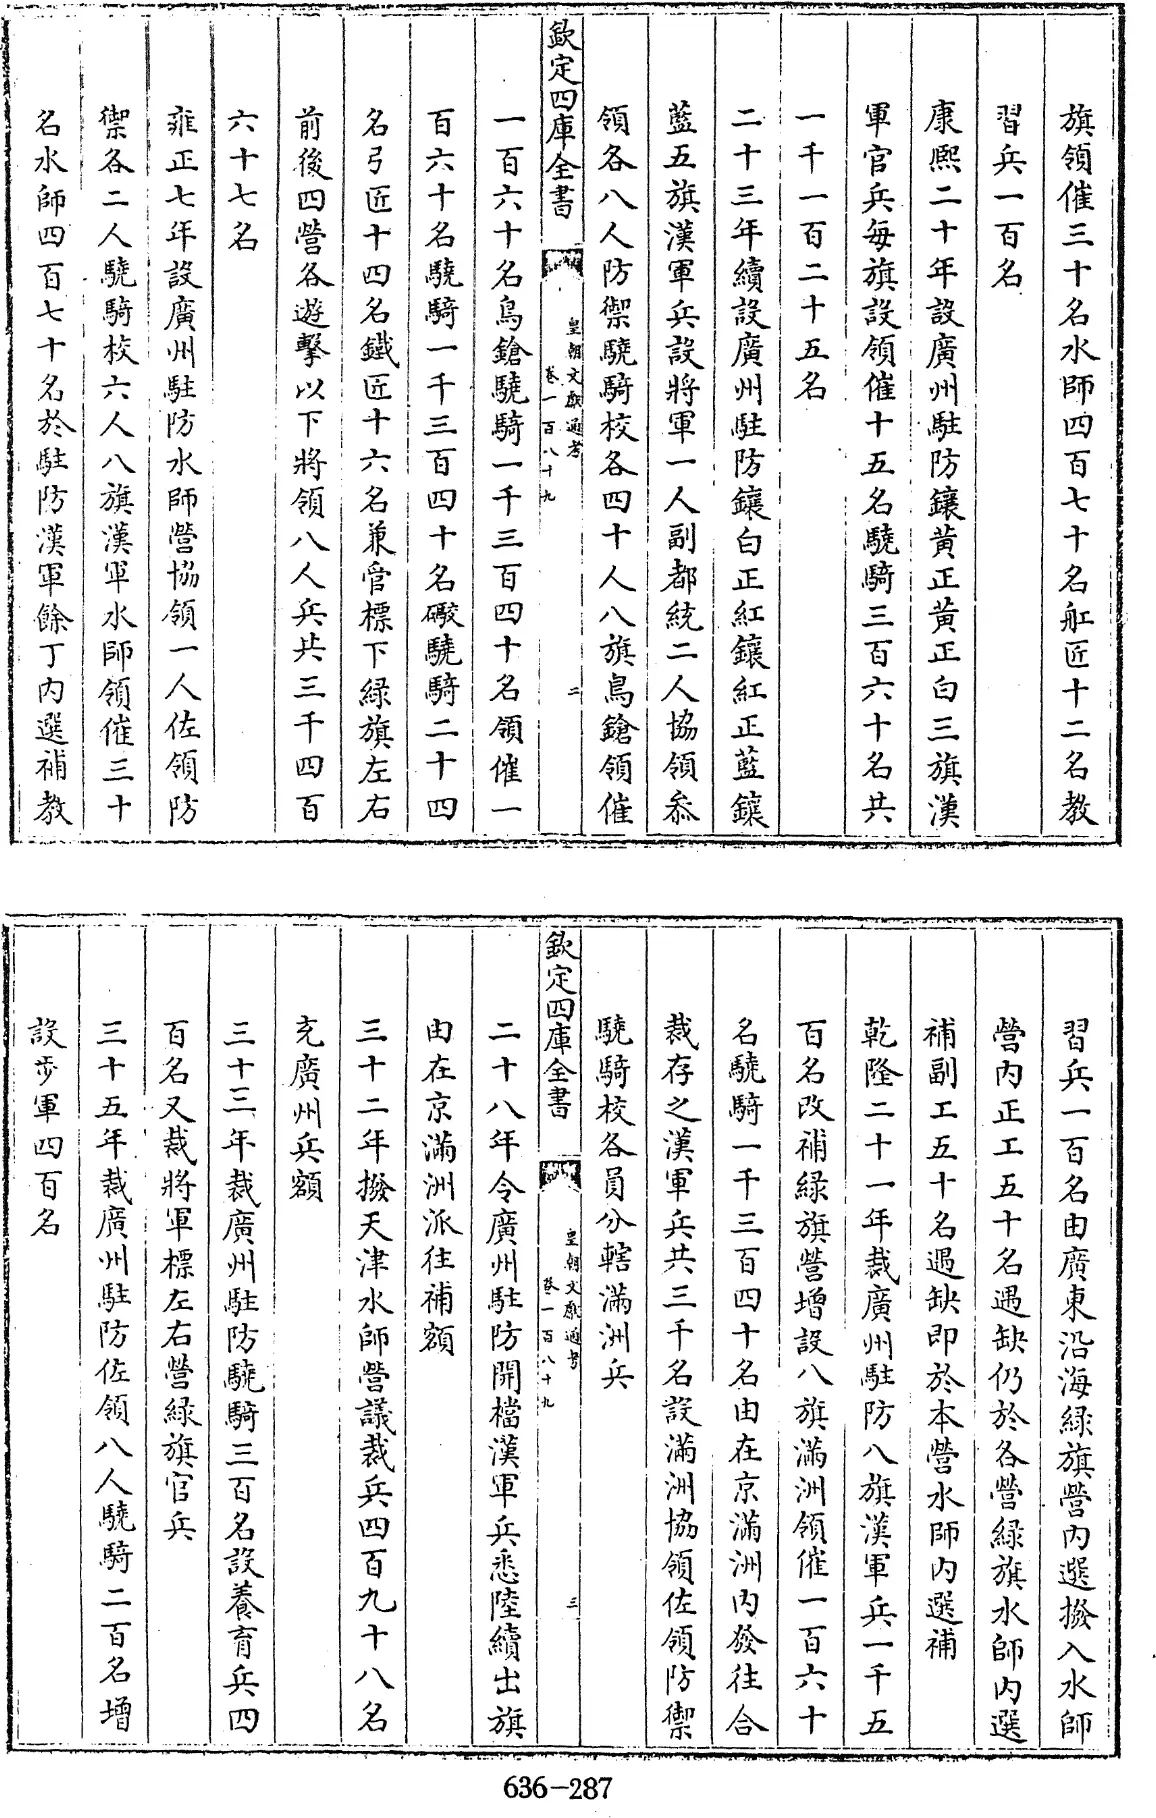 旗領催三十名水師四百七十名舡匠十二名教
習兵一百名
康熙二十年設廣州駐防鑲黃正黃正白三旗漢
軍官兵每旗設領催十五名驍騎三百六十名共
一千一百二十五名
二十三年續設廣州駐防鑲白正紅鑲紅正藍鑲
藍五旗漢軍兵設將軍一人副都統二人協領叅
領各八人防禦驍騎校各四十人八旗鳥鎗領催
欽定四庫全書
皇朝文獻通考
卷一百八十九
二
一百六十名鳥鎗驍騎一千三百四十名領催一
百六十名驍騎一千三百四十名礮驍騎二十四
名弓匠十四名鐵匠十六名兼管標下綠旗左右
前後四營各遊擊以下將領八人兵共三千四百
六十七名
雍正七年設廣州駐防水師營協領一人佐領防
禦各二人驍騎校六人八旗漢軍水師領催三十
名水師四百七十名於駐防漢軍餘丁內選補教
習兵一百名由廣東沿海綠旗營內選撥入水師
營內正工五十名遇缺仍於各營綠旗水師內選
補副工五十名遇缺即於本營水師內選補
乾隆二十一年裁廣州駐防八旗漢軍兵一千五
百名改補綠旗營增設八旗滿洲領催一百六十
名驍騎一千三百四十名由在京滿洲內發往合
裁存之漢軍兵共三千名設滿洲協領佐領防禦
驍騎校各員分轄滿洲兵
欽定四庫全書
皇朝文獻通考
卷一百八十九
三
二十八年令廣州駐防開檔漢軍兵悉陸續出旗
由在京滿洲派往補額
三十二年撥天津水師營議裁兵四百九十八名
充廣州兵額
三十三年裁廣州駐防驍騎三百名設養育兵四
百名又裁將軍標左右營綠旗官兵
三十五年裁廣州駐防佐領八人驍騎二百名增
設步軍四百名
636-287